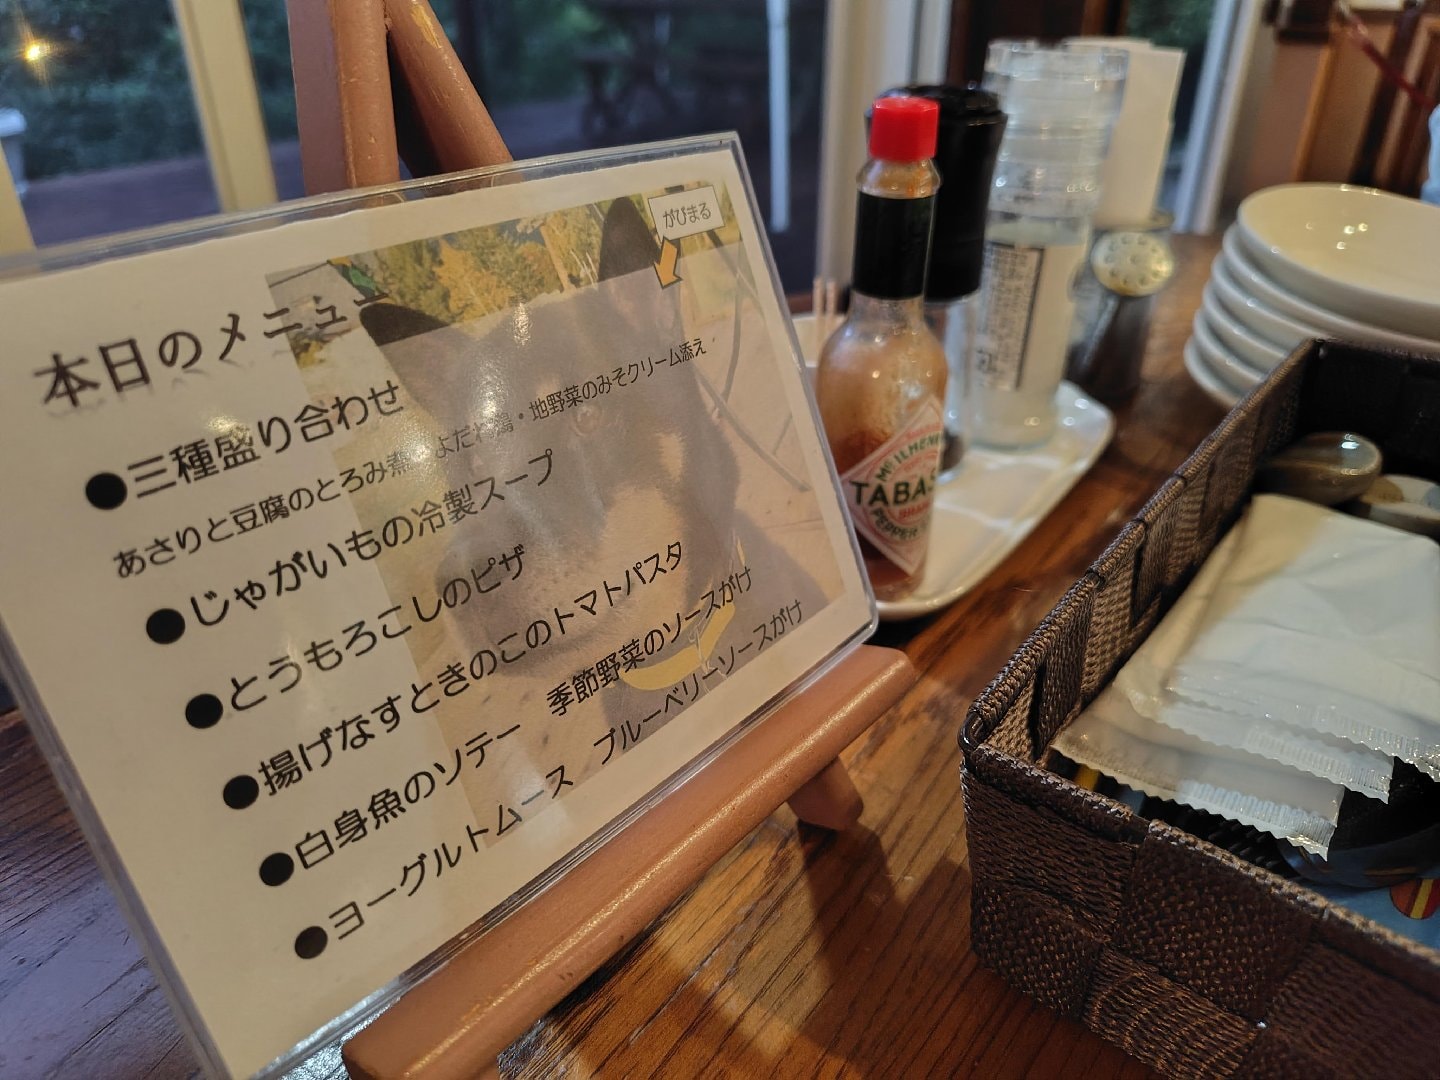 がぴまる
本日のメニュー
●三種盛り合わせ
あさりと豆腐のとろみ煮 よだれ鶏・地野菜のみそクリーム添え
●じゃがいもの冷製スープ
●とうもろこしのピザ
●揚げなすときのこのトマトパスタ
●白身魚のソテー 季節野菜のソースがけ
●ヨーグルトムース ブルーベリーソースがけ
TABAS
PEPPER